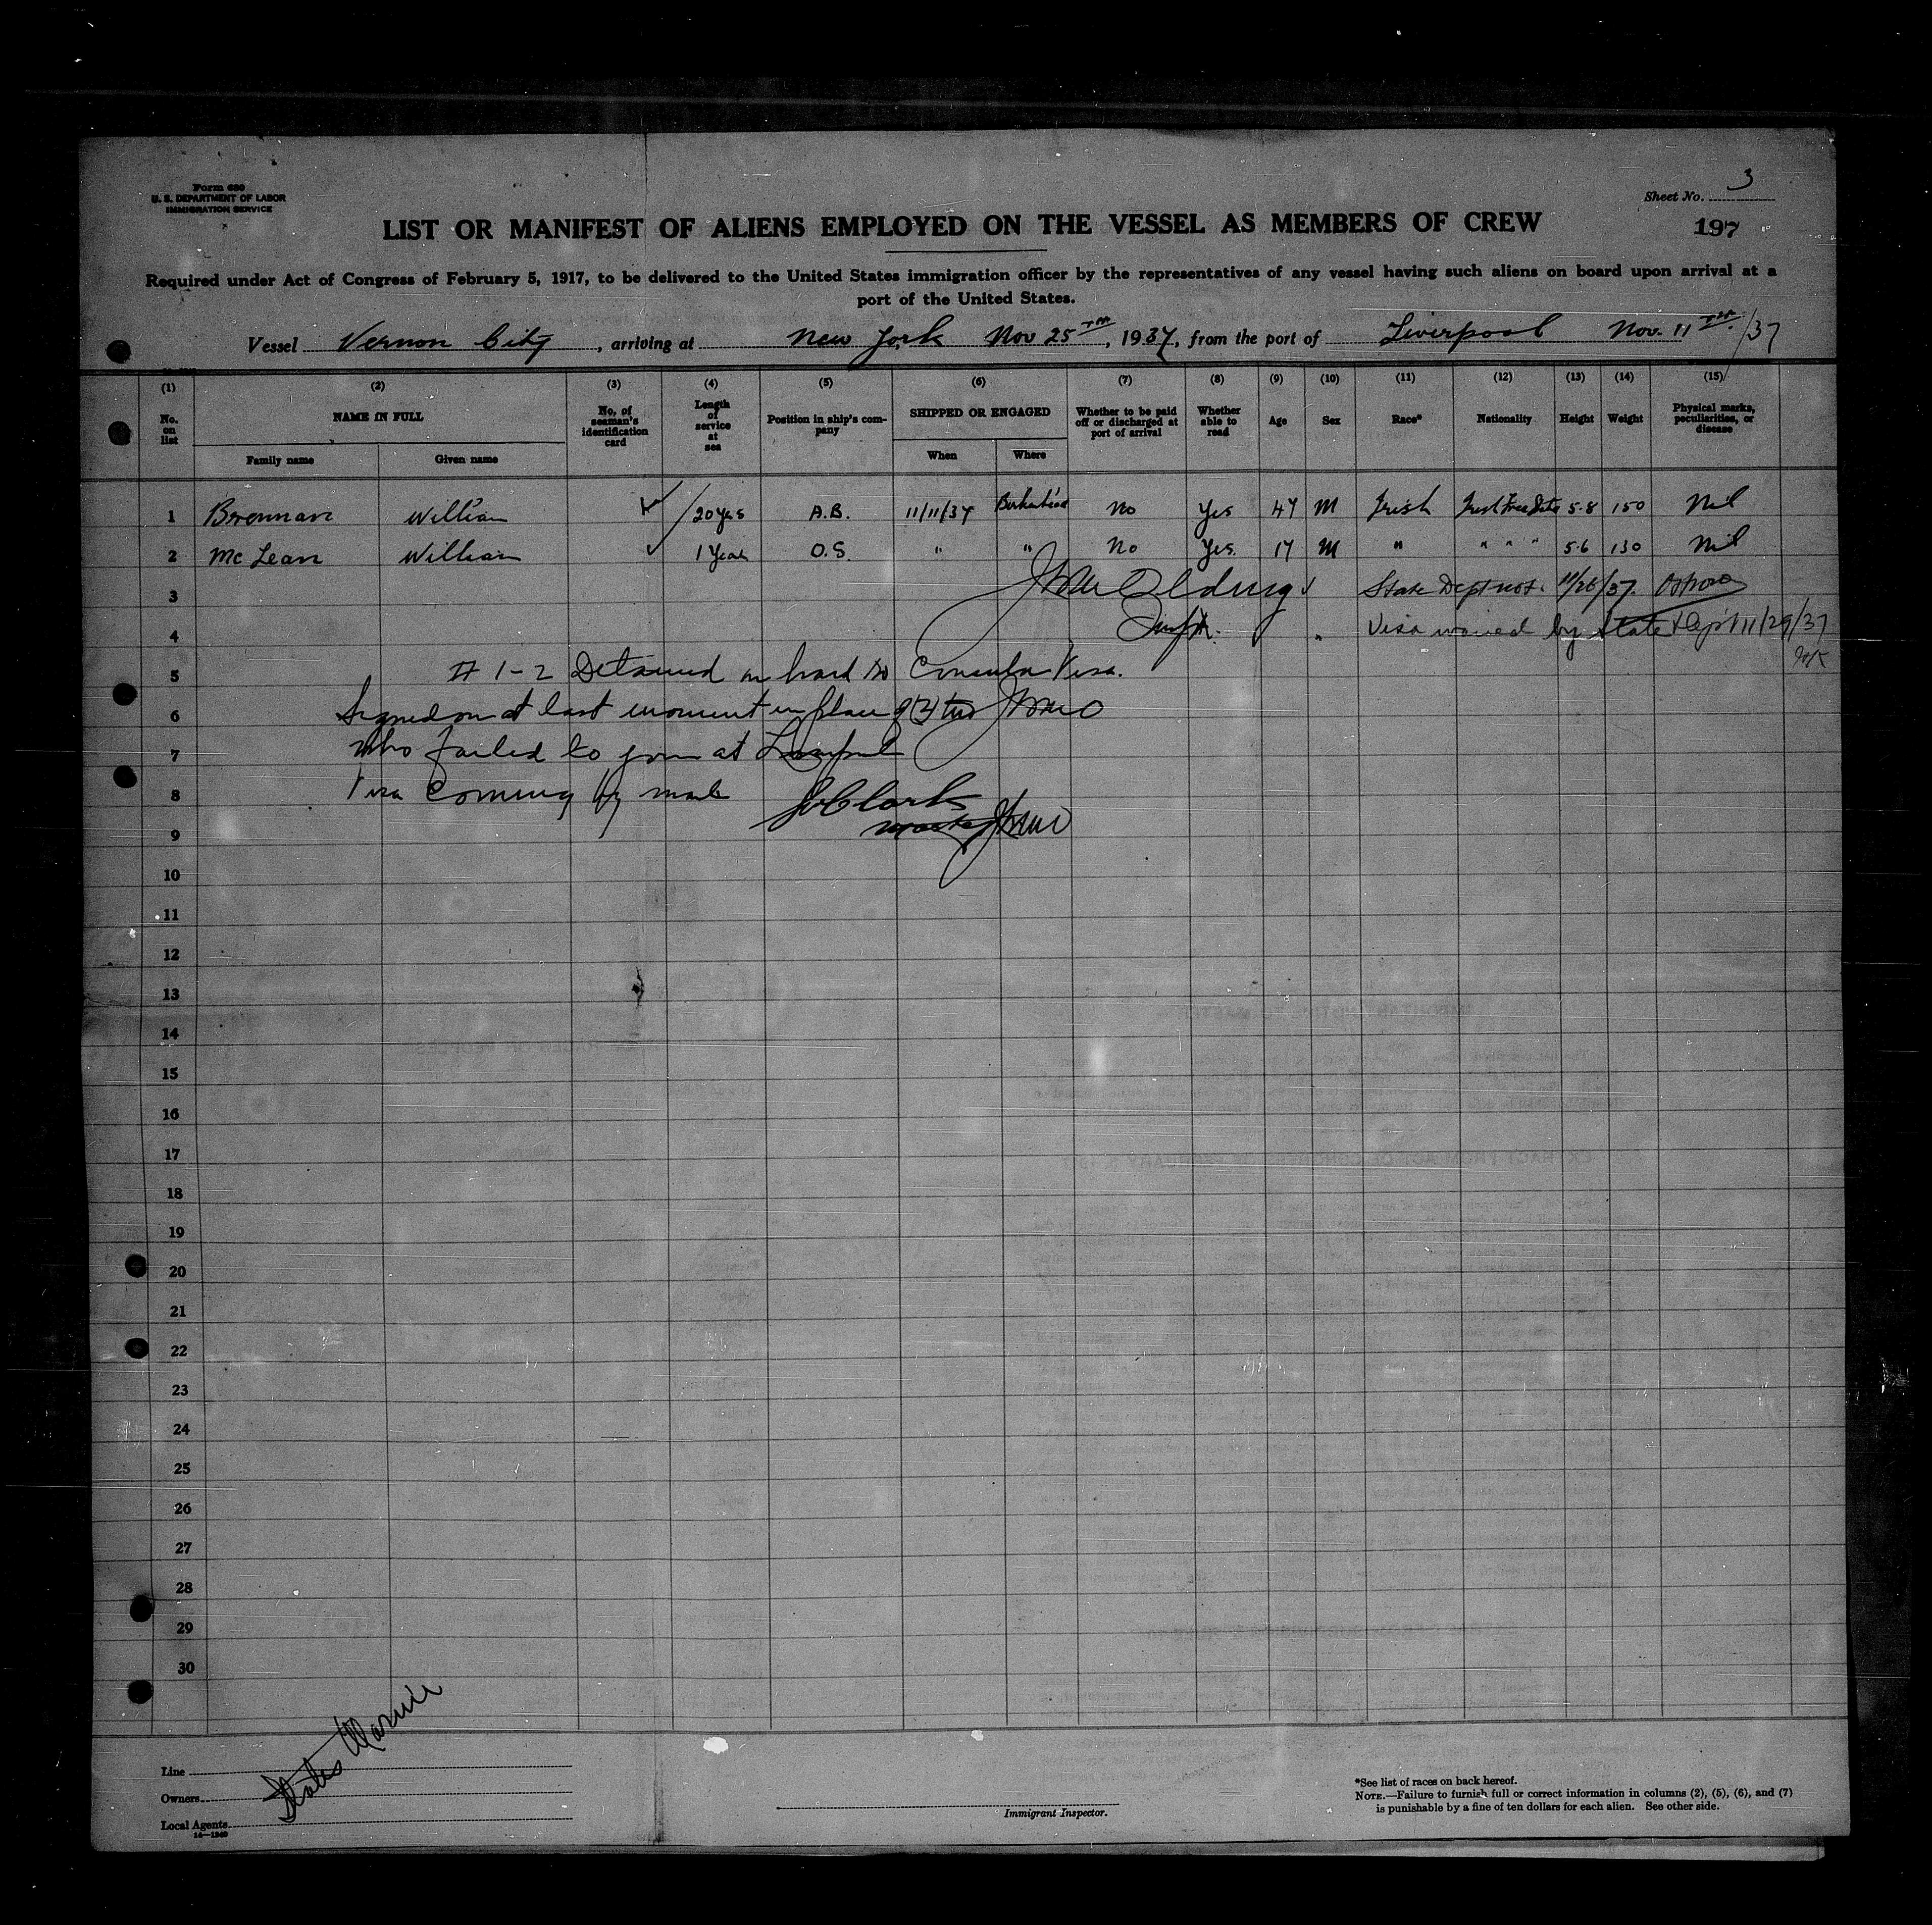 Form 680
U. S. DEPARTMENT OF LABOR
IMMIGRATION SERVICE
Sheet No. 3
197
LIST OR MANIFEST OF ALIENS EMPLOYED ON THE VESSEL AS MEMBERS OF CREW
Required under Act of Congress of February 5, 1917, to be delivered to the United States immigration officer by the representatives of any vessel having such aliens on board upon arrival at a
port of the United States.
Vessel Vernon City, arriving at New York Nov 25TH, 1937, from the port of Liverpool Nov. 11TH/37
(1) (2) (3) (4) (5) (6) (7) (8) (9) (10) (11) (12) (13) (14) (15)
No. on list NAME IN FULL No. of seaman's identification card Length of service at sea Position in ship's company SHIPPED OR ENGAGED Whether to be paid off or discharged at port of arrival Whether able to read Age Sex Race* Nationality Height Weight Physical marks, peculiarities, or disease
Family name Given name When Where
1 Brennan William 20 yrs A.B. 11/11/37 Birkenhead No Yes 47 M Irish Irish Free State 5-8 150 Nil
2 Mc Lean William 1 Year O.S. " " No Yes. 17 M " " " " 5-6 130 Nil
3 State Dept not. 11/26/37.
4 " Visa waived by State Dep't 11/29/37
5 # 1-2 Detained on board no Consular Visa.
6 Signed on at last moment in place of (2) two
7 who failed to join at Liverpool
8 Visa Coming by mail Clark
9 Master
10
11
12
13
14
15
16
17
18
19
20
21
22
23
24
25
26
27
28
29
30
States Marine
Line
Owners
Local Agents
14—1240
Immigrant Inspector.
*See list of races on back hereof.
NOTE.—Failure to furnish full or correct information in columns (2), (5), (6), and (7)
is punishable by a fine of ten dollars for each alien. See other side.